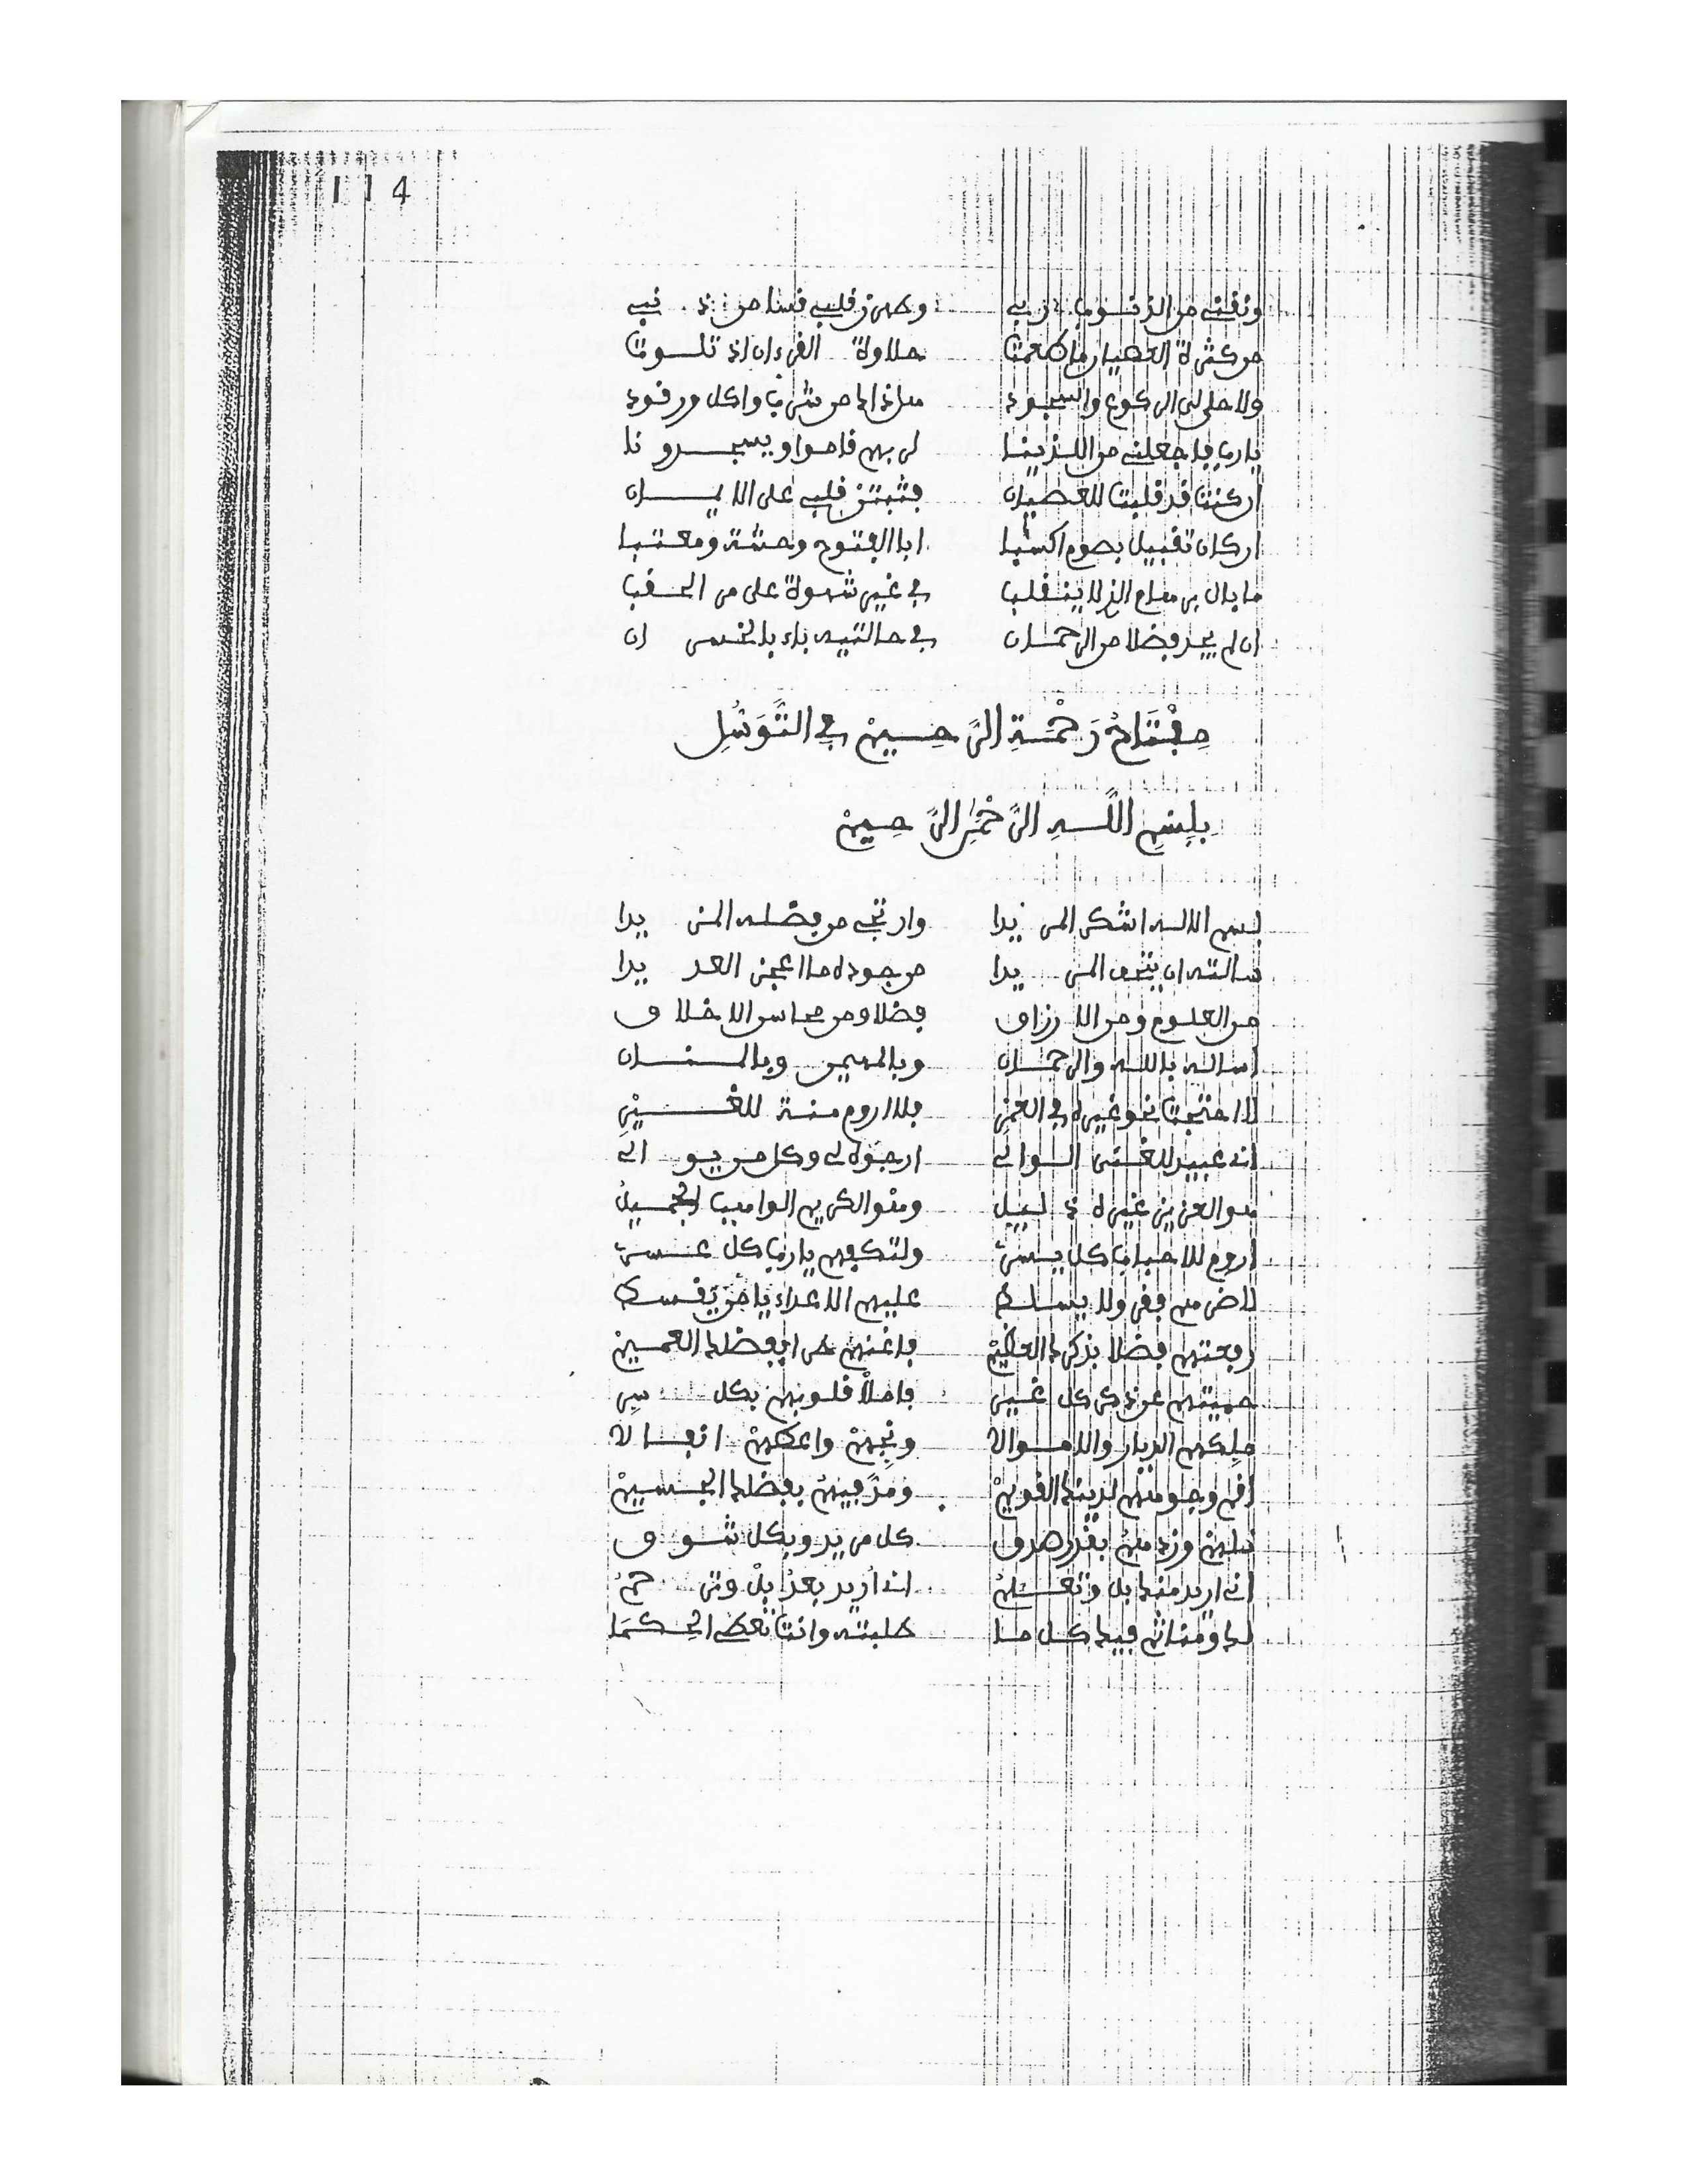 114
ونفنى من الذنوب يا ربى وطهرن قلبى قسا من ذنبى
من كثرة العصيان ما طعمت حلاوة القرءان اذ تلوت
ولا حلى لى الركوع والسجود هل ذا لما من شرب واكل ورقود
يا رب فاجعلنى من اللذينا لربهم قاموا ويسجدونا
ان كنت قد قلبت للعصيان فثبتن قلبى على الايمان
ان كان تقبيل بصوم اكسبا ابا الفتوح وحشة ومعتبا
ما بال برهام الذ لا ينقلب فى غير شهوة على مر الحقب
ان لم يجد فضلا من الرحمان فى حالتيه باء بالخسران
مِفْتَاحُ رَحْمَةِ الرَّحِيمْ فِى التَّوَسُّلِ
بِسْمِ اللَّهِ الرَّحْمَٰنِ الرَّحِيمْ
بسم الاله اشكر المزيدا وارتجى من فضله المزيدا
سالته ان يتحف المريدا من جوده ما اعجز العديدا
من العلوم ومن الارزاق فضلا ومن محاسن الاخلاق
اساله بالله والرحمان وبالمهيمن وبالمنان
لا احتجت نحو غيره فى العمر فلا اروم منة للغير
انى عبيد للغنى الوالى ارجوه لى وكل من يوالى
هو العزيز غيره ذليل وهو الكريم الواهب الجميل
اروم للاحباب كل يسر ولتكفهم يا رب كل عسر
لا ضرهم فقر ولا يسلط عليهم الاعداء يا من يقسط
رفعتهم فضلا بذكرك العظيم فاغنهم طرا بفضلك العميم
حميتهم عن ذكر كل غير فاملأ قلوبهم بكل سر
ملكهم الديار والاموالا ونجهم واعطهم انفالا
اقم وجوههم لدينك القويم ومد فيهم بفضلك الجسيم
نلهم وزدهم بقدر صدق كل مريد وبكل شوق
انى اريد منك بل وتعلم انى اريد بعد بل وترحم
لك وهنائم فيك كل ما طلبته وانت تعطى الحكما